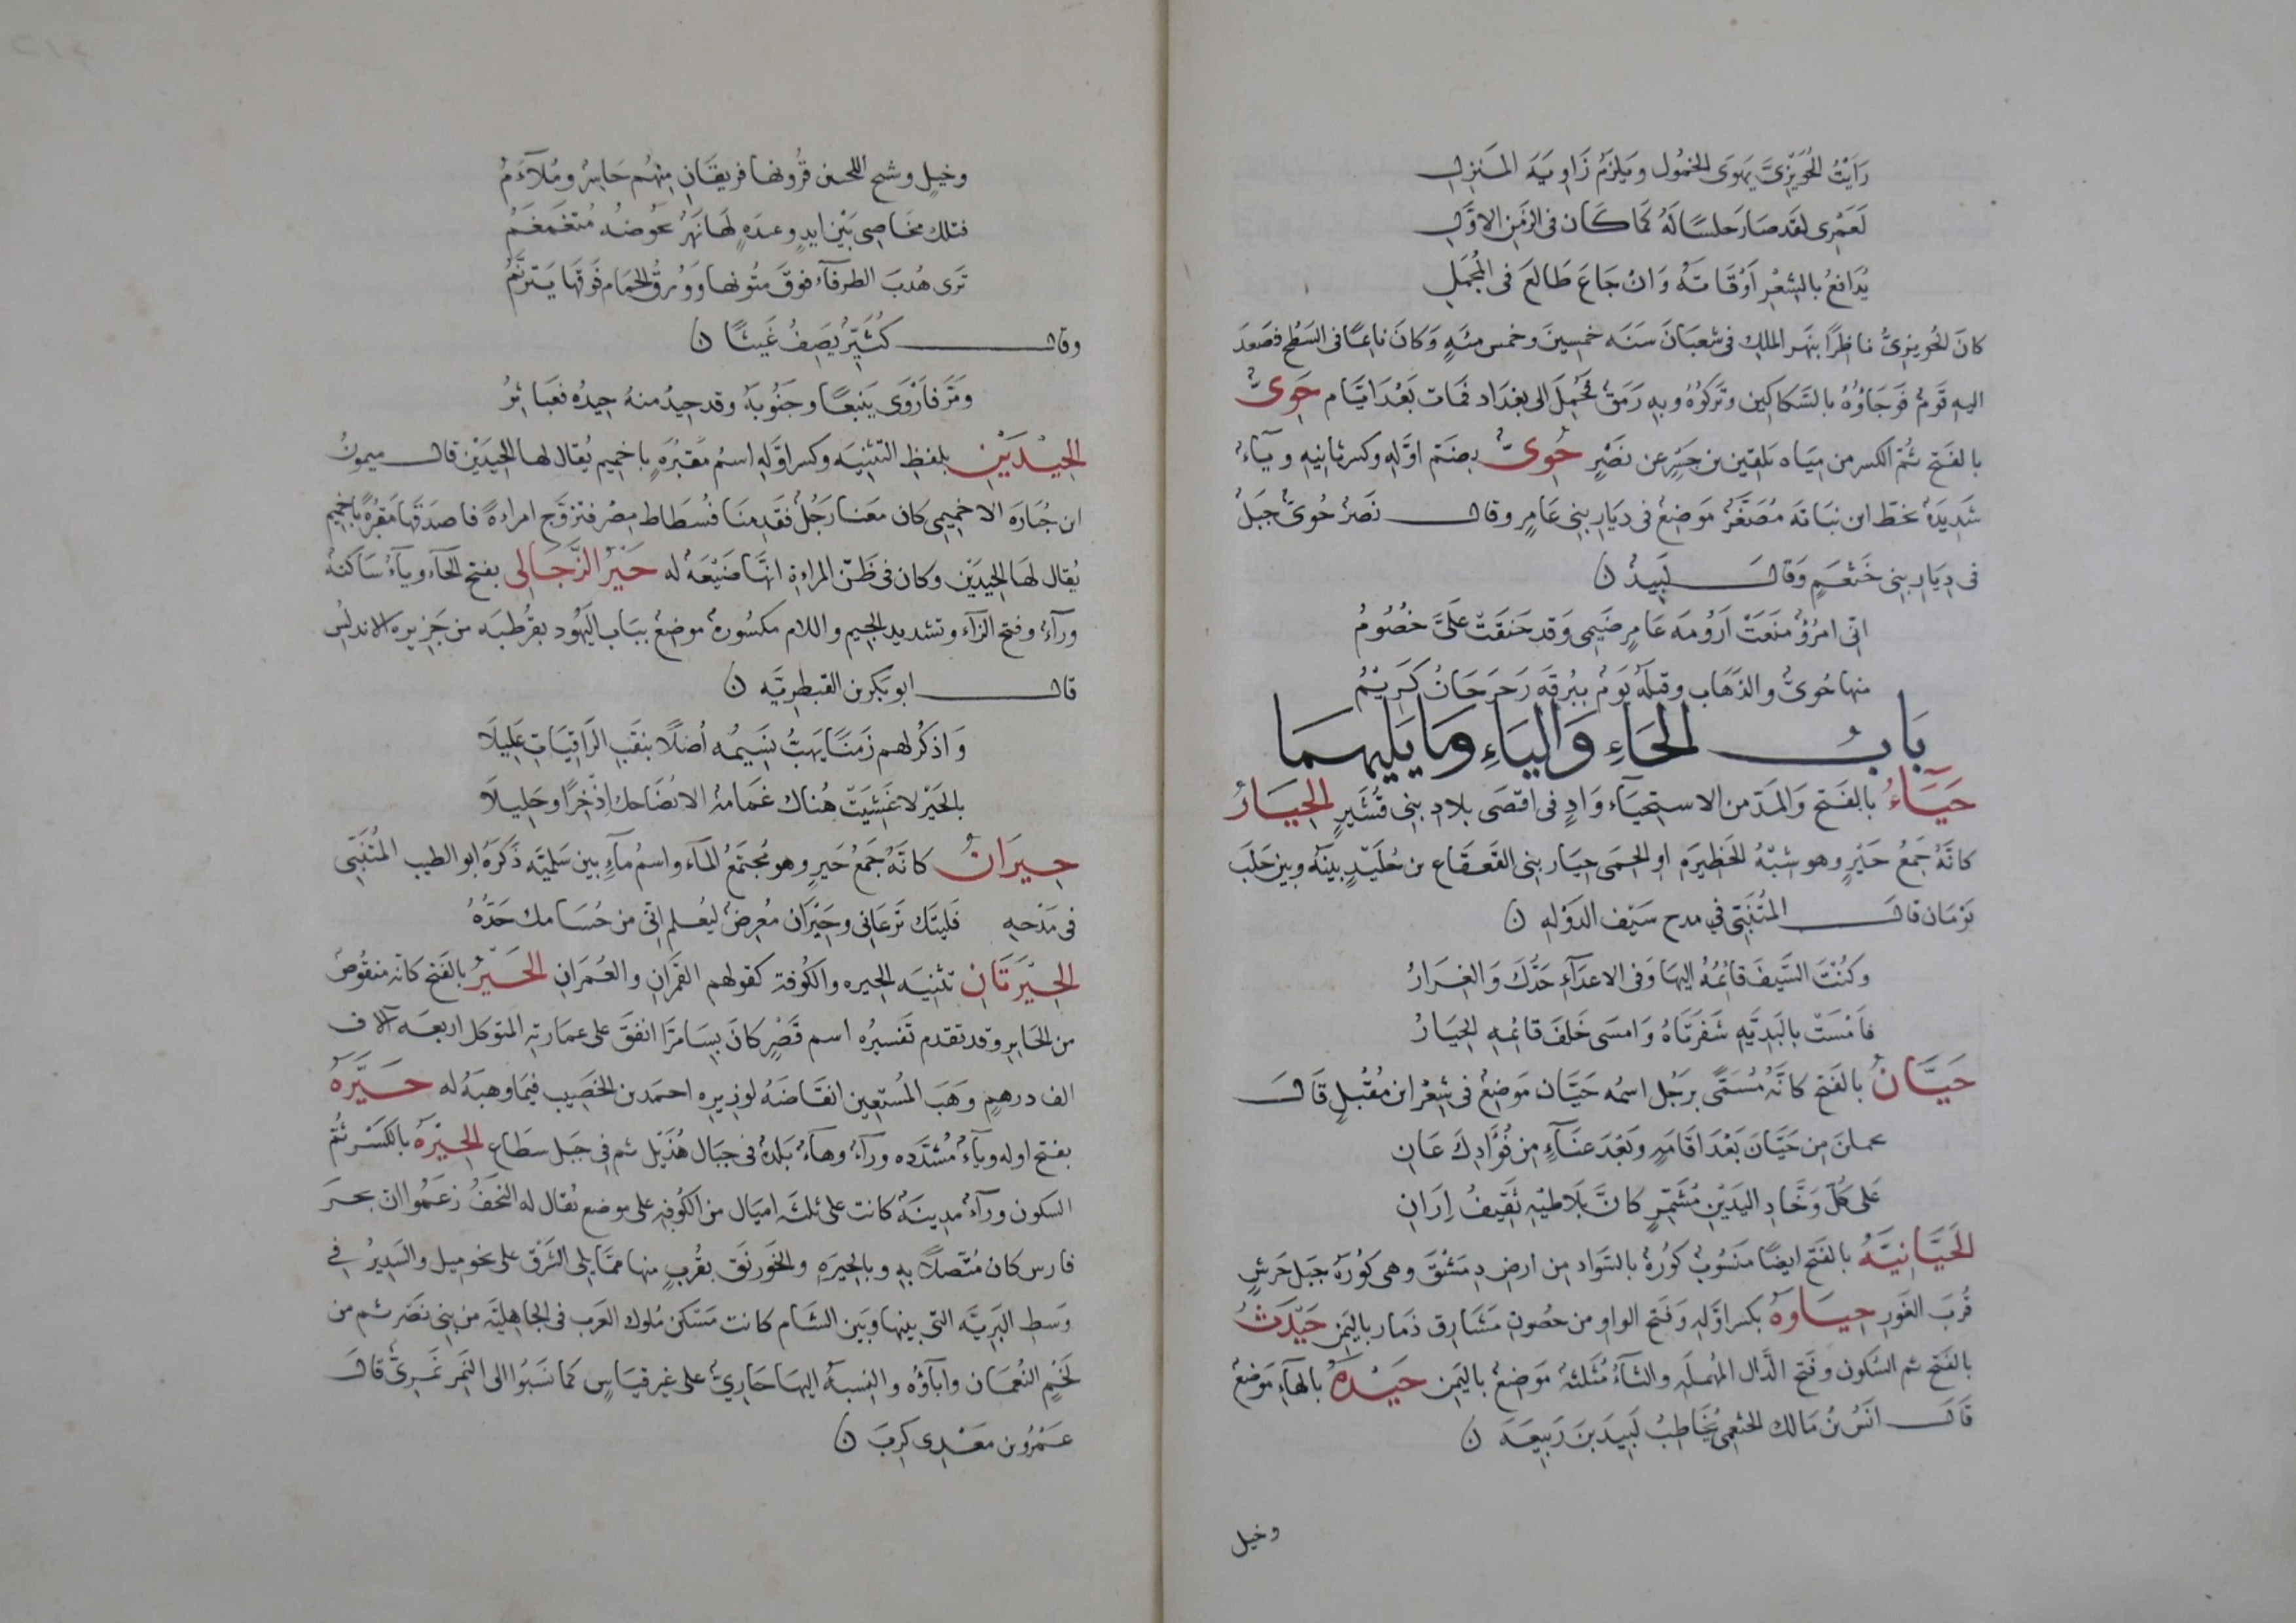 رَأَيْتُ الحُوَيْزِيَّ يَهوَى الخمُول ويَلزَمُ زَاوِيَةَ المَنزِلِ
لَعَمْرِى لقد صَارَ حلسًا لَهُ كَمَا كَانَ فى الزمَنِ الاوَّلِ
يُدَافِعُ بالشِعْرِ أوقَاتَهُ وَانْ جَاعَ طَالعَ فى المُجْمَلِ
كانَ الحُويزىُّ ناظِرًا بنَهرِ الملِكِ فى شعبَانَ سَنَه خمسِينَ وخمس مئَه وَكانَ نائمًا فى السَّطْح فصَعدَ
اليهِ قَومٌ فوَجَاؤُهُ بالسَّكاكِين وتركوُهُ وبِهِ رَمَقٌ فحُمِلَ الى بغدَاد فمات بَعْدَ ايَّام حَوِىٌّ
بالفَتح ثُمّ الكسر من مِيَاه بَلقين بن جَسْرٍ عن نَصْرٍ حُوِىٌّ بضَمّ اوّله وكسر ثانِيهِ ويآءٌ
شَدِيدَةٌ بخطّ ابن نبَاتَه مُصَغَّرٌ مَوضِعٌ فى دِيَارِ بنِى عَامِرٍ وقال نصْرٌ حُوىّ جَبَلٌ
فى دِيَارِ بنِى خَثعَمٍ وَقالَ لَبِيدٌ ن
انّى امرُؤٌ منَعَتْ اَرُومَه عَامِرٍ ضَيمِى وَقد حَنَقَتْ علَىَّ خصُومُ
منها حُوىٌّ والذهَاب وقبلَهُ يَومٌ ببُرقَهِ رَحرَحَانُ كَرِيْمُ
بَابُ الحَاءِ وَاليَاءِ وَمَا يَلِيهِمَا
حَيَآءٌ بالفَتح وَالمَدّ من الاستِحيَآء وَادٍ فى اقصَى بلادِ بنى قُشَيرٍ الحِيَارُ
كانَّهُ جَمعُ حَيْرٍ وهو شبْهُ الحَظِيرَهِ او الحِمَى حِيَار بنِى القَعقَاع بن خُلَيْدٍ بينَهُ وبين حَلَبَ
يَوْمَان قالَ المُتنَبّى في مدح سَيْف الدَوْلهِ ن
وكُنْتَ السَّيفَ قائمُهُ اليهَا وَفى الاعدَآءِ حَدُّكَ وَالغِرَارُ
فاَمْسَتْ بالبَدِيَّهِ شَفرَتَاهُ وَامسَى خَلفَ قائِمِهِ الحِيَارُ
حَيَّانُ بالفَتح كانَّهُ مُسَمًّى برَجُل اسمُه حَيَّان مَوضِعٌ فى شِعْر ابن مُقْبِلٍ قَالَ
تحملنَ مِن حَيَّانَ بَعْدَ اقَامَهٍ وبَعْدَ عنَآءٍ مِن فُؤَادِكَ عَانِ
عَلى كلّ وَخَّادِ اليَدَيْنِ مُشَمِّرٍ كانَّ بَلَاطَيْهِ ثَقِيفُ اِرَانِ
الحَيَّانِيَّهُ بالفَتْح ايضًا مَنسُوبٌ كوُرَةٌ بالسَوَادِ مِن ارضِ دِمَشْقَ وهى كوُرَةُ جَبَل جَرشٍ
قُربَ الغَورِ حِيَاوَهُ بكسر اوَّلهِ وَفَتح الواو من حصُونِ مَشَارِق ذَمار باليَمن حَيْدَثُ
بالفَتح ثم السكون وفَتح الدَّال المهملَهِ والثآءُ مُثَلثهٌ مَوضِعٌ باليَمن حَيْدَهُ بالهَآءِ مَوضِعٌ
قَالَ انَسُ بنُ مَالك الخثعمى يُخَاطِبُ لَبِيدَ بَنَ رَبِيعَهَ ن
وخيل
وخيلٍ وشيح اللحين قُرُونها فريقَانِ مِنهُم حَاسِرٌ ومُلاَءَمُ
فتلك مخَاصِى بَيْنَ ايدٍ وعدَهٍ لهَا نهَرٌ عَوضُه مُتغَمغَمُ
تَرَى هُدبَ الطرفآء فوقَ متُونها وَوُرقُ الحَمَام فَوقَهَا يَترَنّمُ
وقال كثَيّرٌ يَصِفُ غَيثًا ن
وَمَرَّ فأرْوَى يَنبعًا وجَنُوبَهُ وقد حِيدُ منهُ حيدُهُ فعَبَاثِرُ
الحِيْدَيْنِ بلفظِ التثنِيَه وكسر اوَّلهِ اسمُ مَقبُرَهٍ باخمِيم يُقال لها الحِيدَيْن قال ميمونُ
ابن جُبَارَه الاخمِيمِى كان معَنا رَجُلٌ فقَدِمنَا فُسطَاط مِصْر فتزوَّج امراةً فاصدَقَهَا مَقبُرَةً باخمِيم
يُقال لها الحِيدَيْن وكان فى ظَنّ المراةِ انَّهَا ضَيْعَهٌ له حَيْرُ الزَّجَّالِى بفتح الحآء ويآءٌ سَاكنهٌ
ورآءٌ وفَتح الزاء وتشديد الجيم واللام مكسُورهٌ موضِعٌ ببَاب اليَهُود بقرُطبَه من جَزِيره الاندلس
قال ابو بَكر بن القبطرِيَّه ن
وَاذكُر لهم زمَنًا يَهبُّ نسِيمُه أصُلاً بنَفَث الرَّاقيَاتِ عَلِيلَا
بالحَيْر لا غَشِيَتْ هُناك غمَامةٌ الا تضَاحك اذخِرًا وجَلِيلَا
حِيرَانُ كانّهُ جَمعُ حَيرٍ وهو مُجتَمَعُ المآء واسمُ مآءٍ بين سَلمِيَّه ذكَرَهُ ابو الطيب المُتَنَبّى
فى مَدْحِهِ فَليتَك تَرعَانِى وحِيْرَان مُعرِضٌ ليُعلم انّى من حُسَامك حَدُّهُ
الحِيْرَتَانِ تثنِيَه الحِيره والكوُفة كقولهم القَمرانِ والعُمَرانِ الحَيْرُ بالفَتح كانّه منقُوصٌ
من الحَاير وقد تقدم تَفسِيرُه اسم قَصْرٍ كانَ بسَامرَّا انفَقَ على عمارتِه المتوكل اربعَه آلاف
الف درهمٍ وَهَبَ المُستعِين انقَاضَهُ لوزِيره احمَد بن الخَصِيب فيمَا وهبَهُ له حَيَّرَهُ
بفتح اوله ويآءٌ مُشدَّده ورآءٌ وهآءٌ بَلدهٌ فى جبَال هُذَيل ثم فى جَبل سطَاع الحِيْرَهُ بالكَسْر ثمّ
السكون ورآءٌ مدِينَهٌ كانت على ثلثَه امِيَال من الكُوفَهِ على موضع يُقال له النجَفُ زعَمُوا ان بحرَ
فارس كان مُتَّصلًا بِهِ وبالحِيرَهِ والخَورنَق بقُربٍ منها ممَّا يلى الشَرقَ على نحو ميل والسَدِيرُ فى
وَسطِ البَرِيَّه التى بينها وبَين الشام كانت مَسكنَ مُلوك العَرب فى الجَاهليَّه من بنى نَصْر ثم من
لَخْمٍ النُعمَان وابآؤُه والنِسبهُ اليهَا حَارِىٌّ على غير قيَاسٍ كمَا نسَبُوا الى النَمِر نَمَرِىٌّ قالَ
عَمْرُو بن معْدِى كرِبَ ن